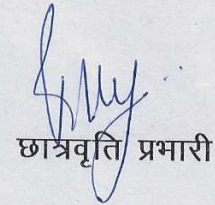 छात्रवृति प्रभारी